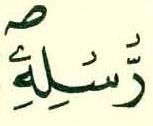 رُّسُلِهِۦۖ